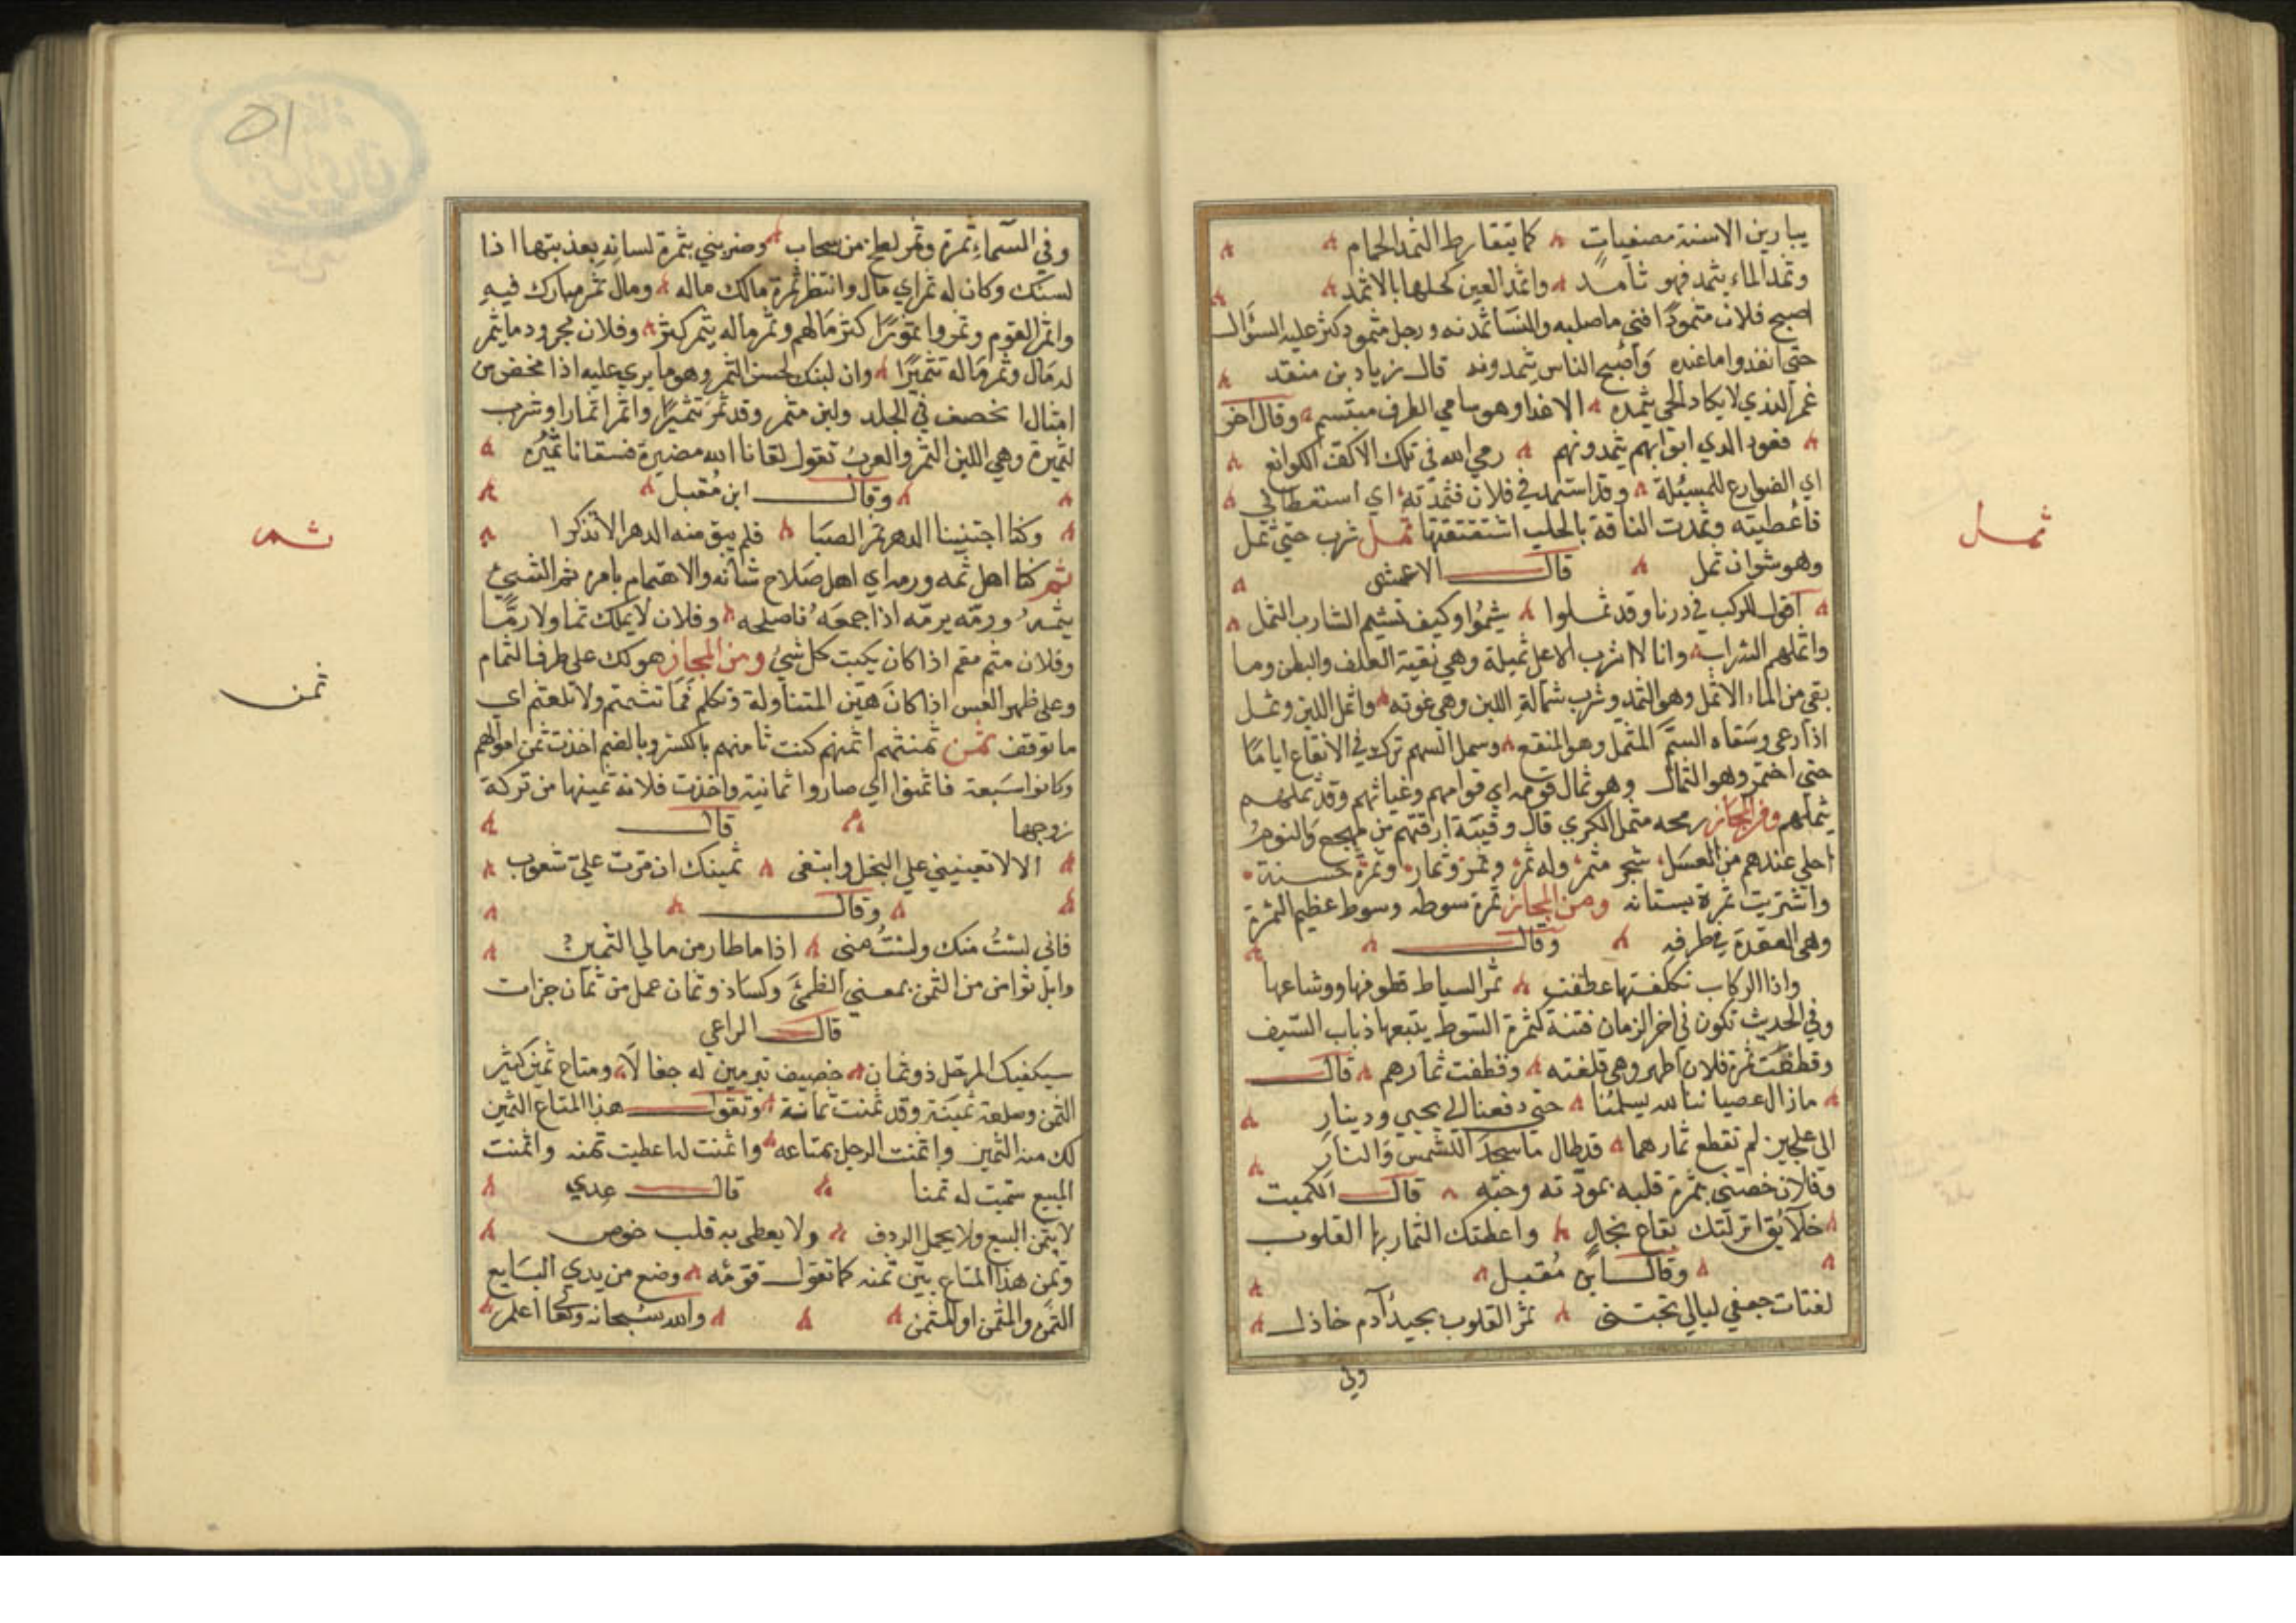 يبارين الاسنة مصغيات كما يتقارط الثمد الحمام
وثمد الماء يثمد فهو ثامد واثمد العين كحلها بالاثمد
اصبح فلان مثمودا فني ما صلبه والنسا ثمدنه ورجل مثمود كثر عليه السؤال
حتى انفدوا ما عنده واصبح الناس يثمدونه قال زياد بن منقد
غمر الندي لا يكاد الحي يثمده الا غدا وهو سامي الطرف مبتسم وقال اخر
قعود الدي ابوابهم يثمدونهم رمى الله في تلك الاكف الكوانع
اي الضوارع للمسئلة وقد استمد في فلان فثمدته اي استعطاني
فاعطيته وثمدت الناقة بالحلب اشتققتها ثمل شرب حتى ثمل
وهو نشوان ثمل قال الاعشى
اقول للركب في درنا وقد ثملوا شيموا وكيف تشيم الشارب الثمل
واثملهم الشراب وانا لا اشرب الا على ثميلة وهي بقية العلف والبطن وما
بقي من الماء الا ثمل وهو الثمد وشرب ثمالة اللبن وهي غوته واثمل اللبن وثمل
اذا رعى وسقاه السم المثمل وهو المنقع وسمل السهم ترك في الانقاع اياما
حتى اختمر وهو الثمال وهو ثمال قومه اي قوامهم وغياثهم وقد ثملهم
يثملهم ومن المجاز رمحه مثمل الكري قال وفتية ارقتهم من مهجع والنوم
احلى عندهم من العسل شجر مثمر وله ثمر وثمر وثمار وثمرة حسنة
واشتريت ثمرة بستانه ومن المجاز ثمرة سوطه وسوط عظيم الثمرة
وهي العقدة في طرفه وقال
واذا الركاب تكلفتها عطفت ثمر السياط قطوفها ووشاعها
وفي الحديث تكون في اخر الزمان فتنة كثمرة السوط يتبعها ذباب السيف
وقطفت ثمرة فلان اطهر وهي قلفته وقطفت ثمارهم قال
ما زال عصياننا لله يسلمنا حتى دفعنا الى يحيى ودينار
الى علجين لم تقطع ثمارهما قد طال ما سجدا للشمس والنار
وفلان خصني بثمرة قلبه بمودته وحبه قال الكميت
خلائق انزلتك بقاع نجال واعطتك الثمار بها القلوب
وقال ابن مقبل
لفتات جعفي ليالي تجتني ثمر القلوب بجيد آدم خاذل
وفي
ثمل
وفي السماء ثمرة وثمر لطخ من سحاب وضربني بثمرة لسانه بعذبتها اذا
لسنك وكان له ثمر اي مال وانتظر ثمرة مالك ماله ومال ثمر مبارك فيه
واثمر القوم وثمروا ثمورا كثر مالهم وثمر ماله يثمر كثر وفلان مجرود ما يثمر
له مال وثمر ماله تثميرا وان لبنك لحسن الثمر وهو ما يري عليه اذا مخض من
امثال ا نخصف في الجلد ولبن مثمر وقد ثمر تثميرا واثمر اثمارا وشرب
لثميرة وهي اللبن الثمر والعرب تقول لقانا الله مضيرة فسقانا ثميره
وقال ابن مقبل
وكنا اجتنينا الدهر ثمر الصبا فلم يبق منه الدهر الا تذكرا
ثم كنا اهل ثمه ورمه اي اهل صلاح شانه والاهتمام بامره ثم الشيئ
يثمه ورمه يرمه اذا جمعه فاصلحه وفلان لا يملك ثما ولا رما
وفلان مثم مقم اذا كان يكبت كل شئ ومن المجاز هو لك على طرف الثمام
وعلى ظهر العس اذا كان هين المتناولة وتكلم فما تثمتم ولا تلعثم اي
ما توقف ثمن ثمنتهم اثمنهم كنت ثامنهم بالكسر وبالضم اخذت ثمن اموالهم
وكانوا سبعة فاثمنوا اي صاروا ثمانية واخذت فلانة ثمينها من تركة
زوجها قال
الا لا تعينيني على البخل وابتغى ثمينك ان مرت علي شعوب
وقال
فاني لست منك ولست مني اذا ما طار من مالي الثمين
وابل ثوامن من الثمن بمعنى الظمئ وكساذ وثمان عمل من ثمان جزات
قال الراعي
سيكفيك المرحل ذو ثمان خصيف تبرمين له جفالا ومتاع ثمين كثير
الثمن وسلعة ثمينة وقد ثمنت ثمانة وتقول هذا المتاع الثمين
لك منه الثمين واثمنت الرجل بمتاعه واثمنت له اعطيت ثمنه واثمنت
المبيع سميت له ثمنا قال عدي
لا يثمن البيع ولا يحمل الردف ولا يعطى به قلب خوص
وثمن هذا المتاع بين ثمنه كما تقول قومه وضع من يدي البايع
الثمن والمثمن او المثمن والله سبحانه وتعالى اعلم
ثم
ثمن
٥١